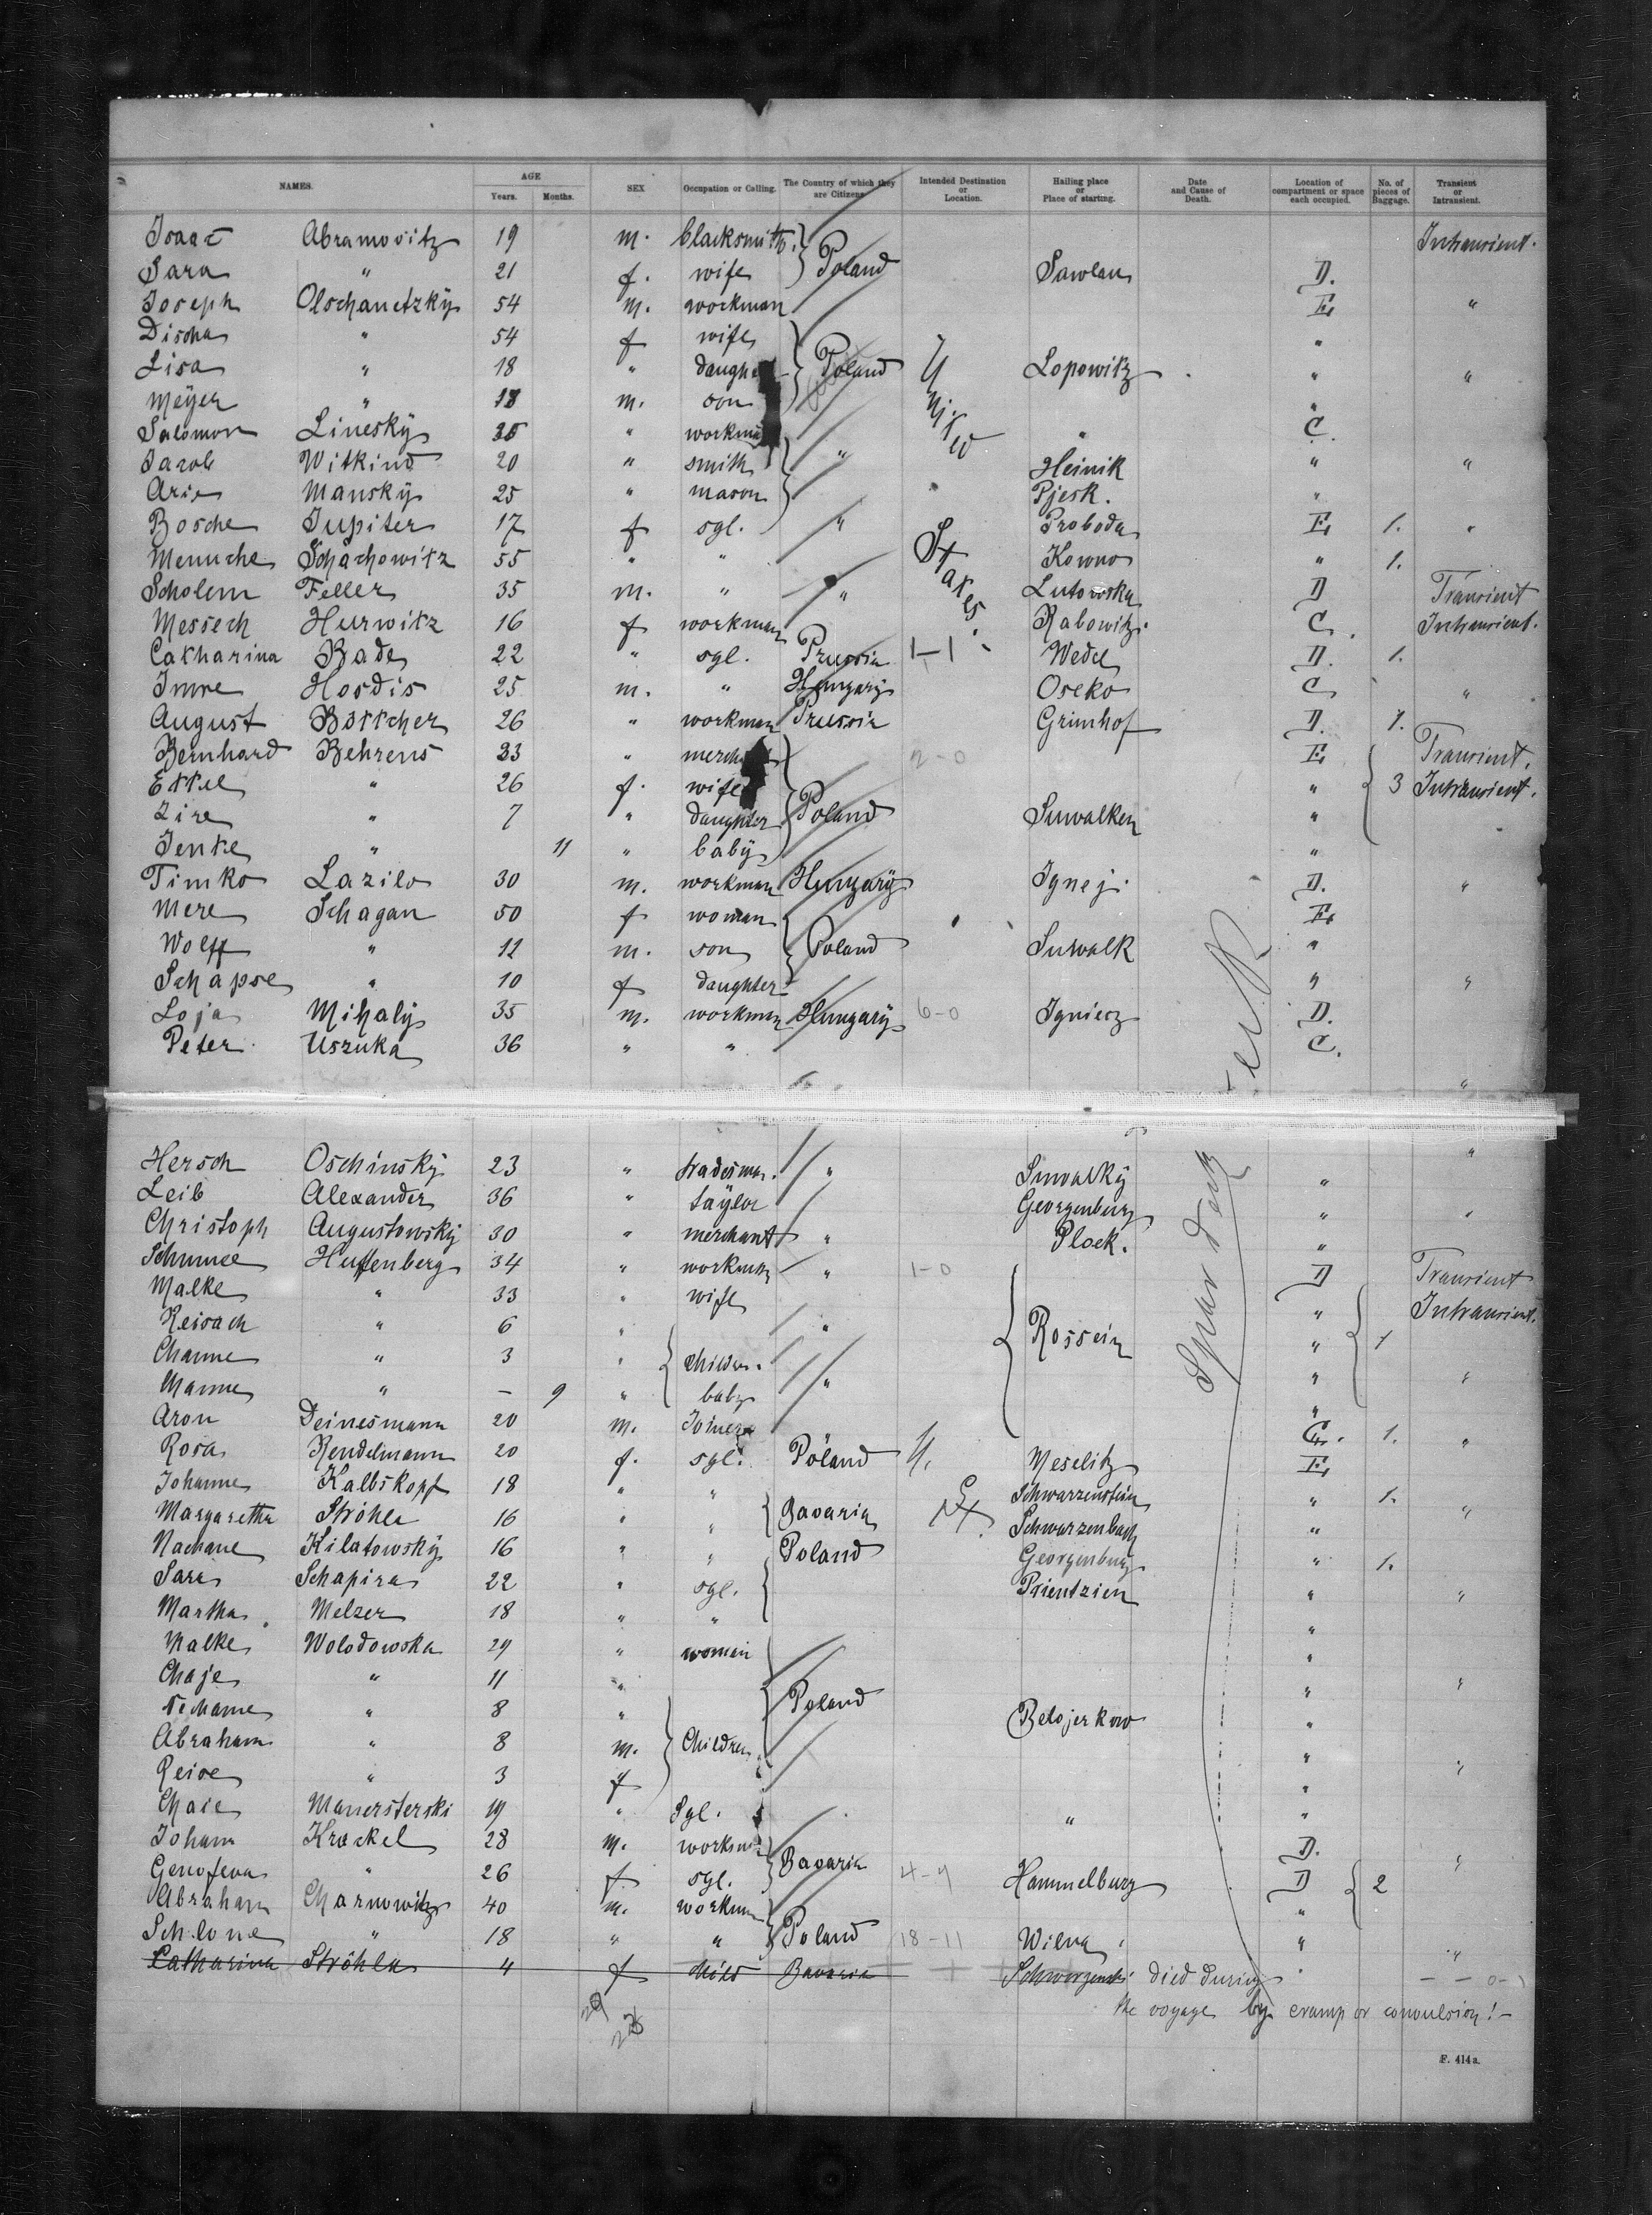 NAMES. AGE Years. Months. SEX Occupation or Calling. The Country of which they are Citizens. Intended Destination or Location. Hailing place or Place of starting. Date and Cause of Death. Location of compartment or space each occupied. No. of pieces of Baggage. Transient or Intransient.
Isaac Abramovitz 19 m. blacksmith Intransient.
Sara " 21 f. wife Poland Sawlau D.
Joseph Olschanetzky 54 m. workman E "
Discha " 54 f wife "
Lisa " 18 " Poland Lopowitz " "
Meyer " 18 m. son "
Salomon Linesky 35 " " C.
Jacob Witkind 20 " smith " Heinik " "
Aric Mansky 25 " mason Pjesk. "
Bosche Jupiter 17 f sgl. " Proboda E 1. "
Menuche Schachowitz 55 " " Kowno " 1.
Scholem Feller 35 m. " " Lutowska D Transient
Messech Hurwitz 16 f workman Rabowitz. C. Intransient.
United States.
Catharina Bade 22 " sgl. Prussia 1-1 Wedel D. 1.
Imre Hosdis 25 m. " Hungary Oseko C "
August Böttcher 26 " workman Prussia Grimhof D. 1.
Bernhard Behrens 33 " 2-0 E Transient.
Ettel " 26 f. wife " 3 Intransient.
Zire " 7 " daughter Poland Suwalken "
Jenke " 11 " baby "
Timko Lazilo 30 m. workman Hungary Ignej. D. "
Mere Schagan 50 f woman E
Wolff " 12 m. son Poland Suwalk "
Schapse " 10 f daughter " "
Loja Mihaly 35 m. workman Hungary 6-0 Igniesz D.
Peter Uszuka 36 " " C.
"
Hersch Oschinsky 23 " tradesman. " Suwalky " "
Leib Alexander 36 " taylor Georgenburg " "
Christoph Augustowsky 30 " merchant " Plock. "
Schmuel Huffenberg 34 " workman " 1-0 D Transient
Malke " 33 " wife " Intransient.
Reisach " 6 " " Rossein " 1
Channe " 3 " children " "
Manne " - 9 " baby " "
Aron Deinesmann 20 m. Joiner C. 1. "
Rosa Rendelmann 20 f. sgl. Poland U. Meselitz E
Johanne Kalbskopf 18 " " Schwarzenstein " 1. "
Margaretha Ströhla 16 " " Bavaria St. Schwarzenbach "
Nachane Kilatowsky 16 " " Poland Georgenburg " 1.
Sara Schapira 22 " sgl. Prientzien " "
Martha Melzer 18 " " "
Malke Wolodowska 29 " women "
Chaje " 11 " " "
Nechame " 8 " Poland Belojerkow "
Abraham " 8 m. Children " "
Reise " 3 f "
Chaie Manersterski 19 " Sgl. " "
Johann Krackel 28 m. workman D. "
Genofeva " 26 f. sgl. Bavaria 4-9 Hammelburg D 2
Abraham Charnowitz 40 m. workman "
Schlone " 18 " " Poland 18-11 Wilna " "
Catharina Ströhla 4 f child Bavaria died during
the voyage by cramp or convulsion! -
29
28
F. 414 a.